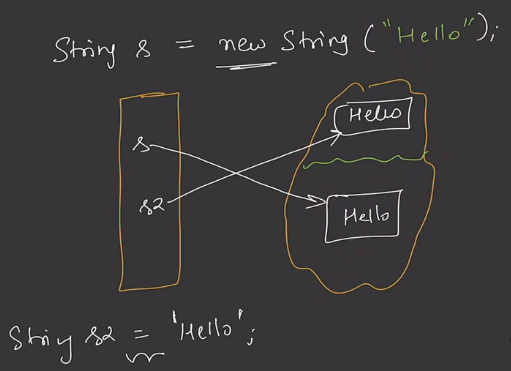 String s = new String ("Hello");
Hello
s
s2
Hello
String s2 = "Hello";